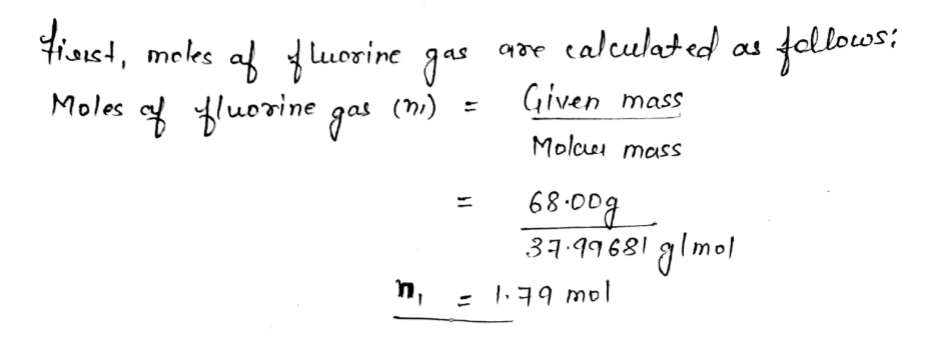 First, moles of fluorine gas are calculated as follows:
Moles of fluorine gas (n₁) = Given mass
Molar mass
= 68.00g
37.99681 g/mol
n₁ = 1.79 mol